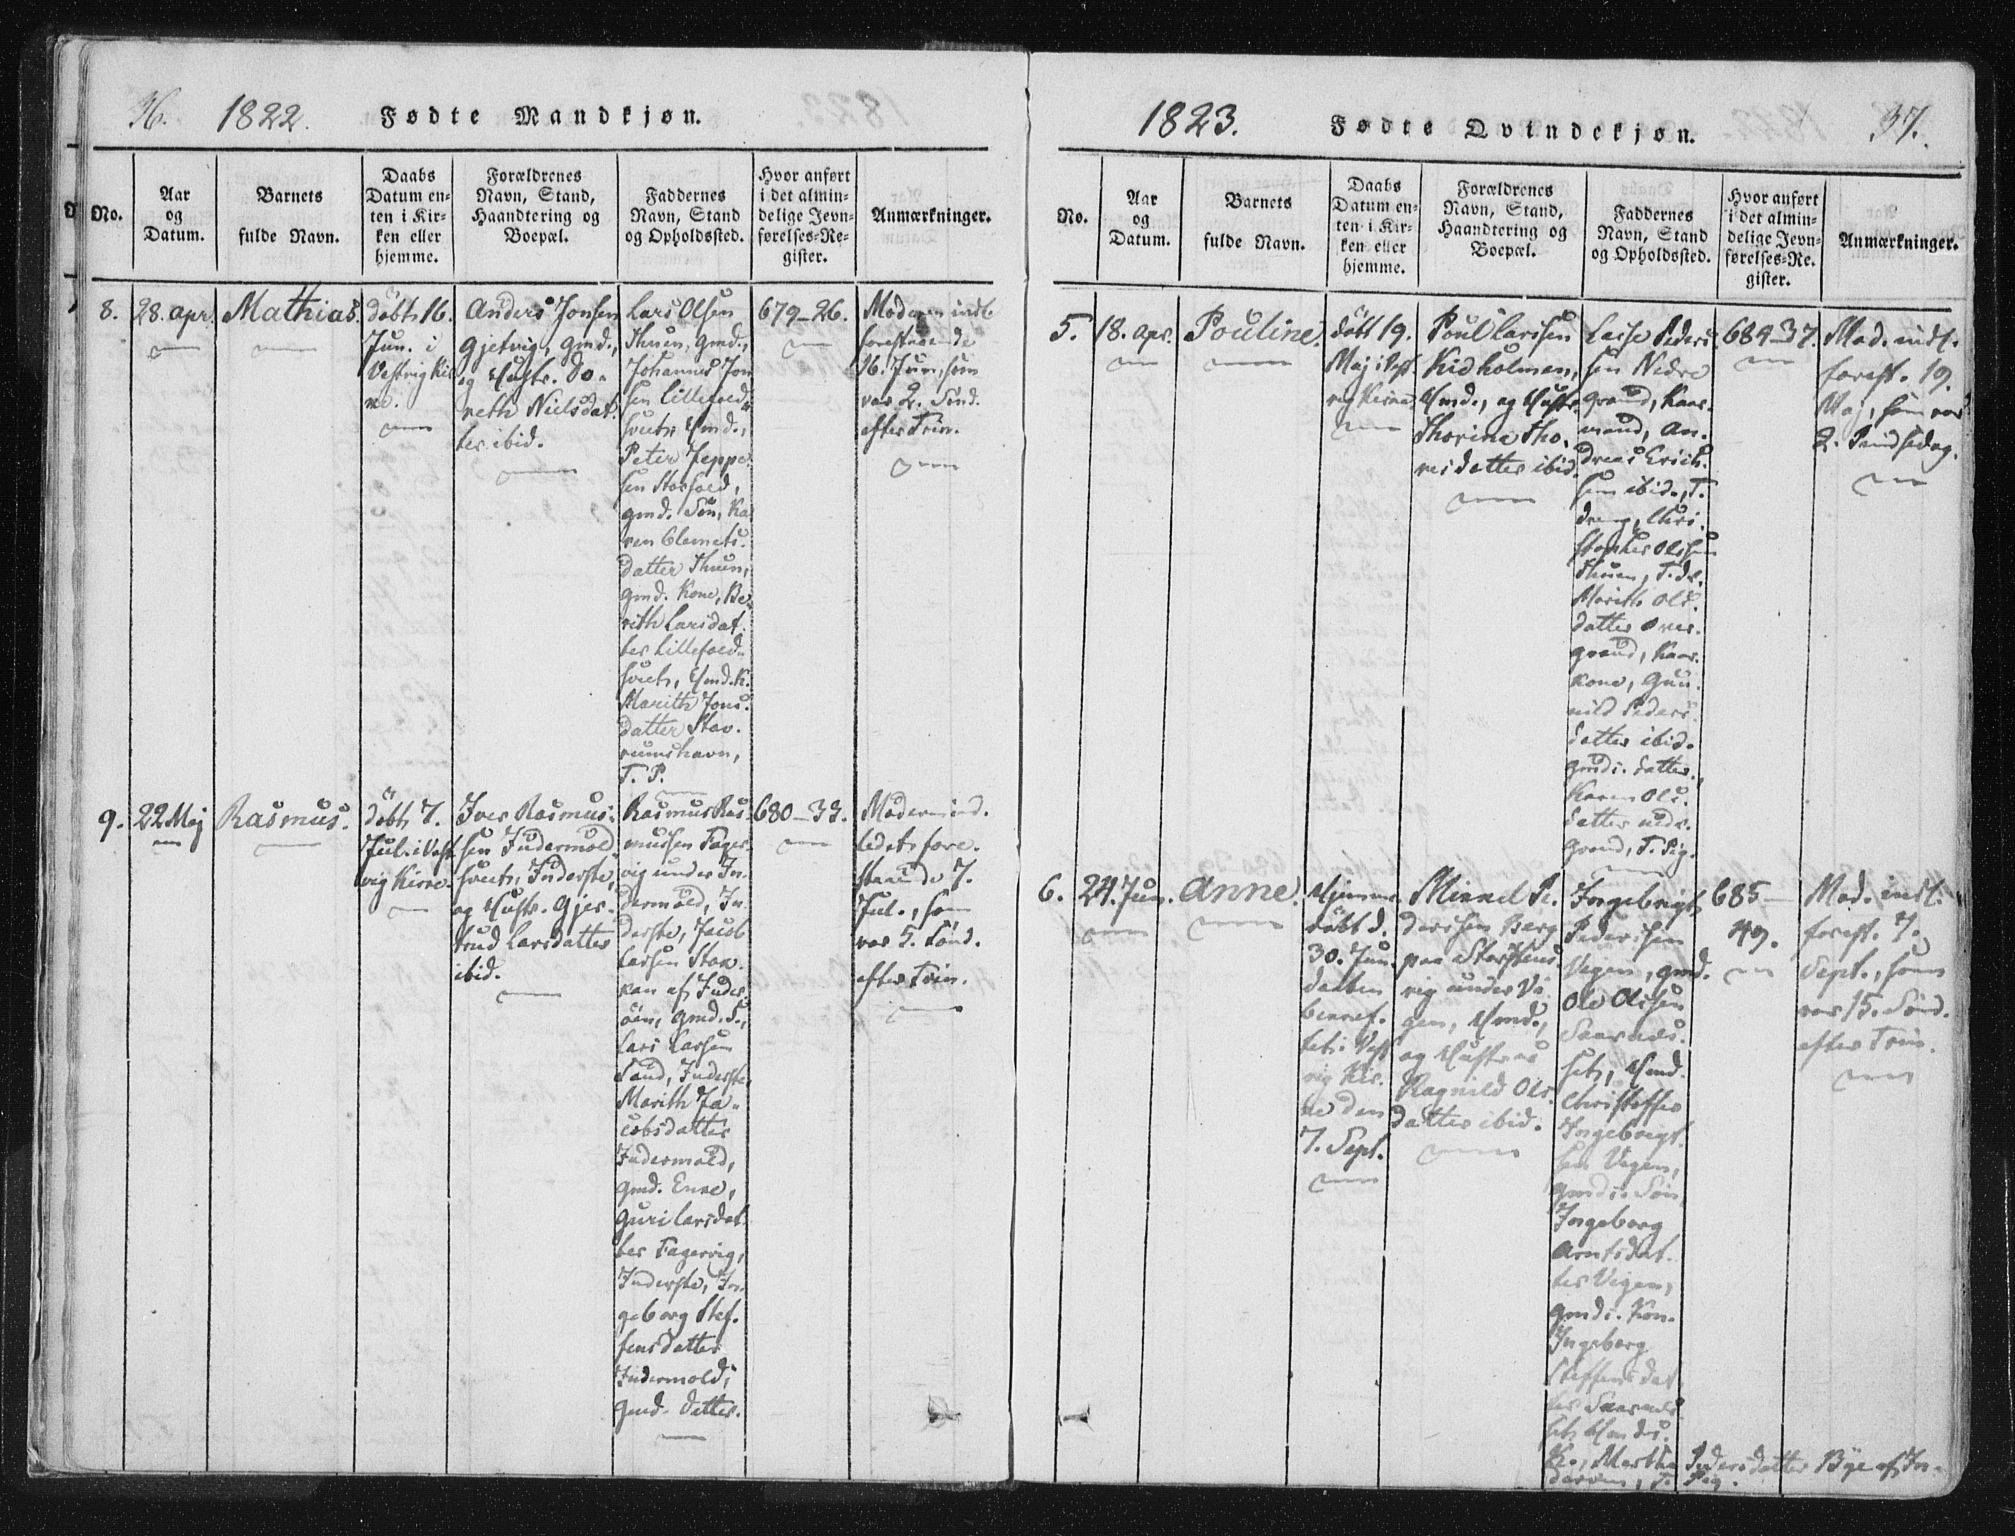 36. 1822. Fødte Mandkjøn.
No.
Aar
og
Datum.
Barnets
fulde Navn.
Daabs
Datum en-
ten i Kir-
ken eller
hjemme.
Forældrenes
Navn, Stand,
Haandtering og
Boepæl.
Faddernes
Navn, Stand
og Opholdssted.
Hvor anført
i det almin-
delige Jevn-
førelses-Re-
gister.
Anmærkninger.
8.
28. apr.
Mathias.
döbt 16.
Jun. i
Vestvig Kir
ke.
Anders Jonsen
Gjetvig, gmd.,
og Hustr. Do-
reth Nielsdat
ter ibid.
Lars Olsen
Thuen, gmd.,
Johannes Jon
sen Lillefold
Hmd.,
Peter Jeppe
sen Storfold,
gmd. Sön, Ka
ren Clemets-
datter Thuen,
gmd. Kone, Be
rith Larsdat
ter Lillefold-
Hmd. K.
Marith Jons-
datter Stav-
rumshavn,
T. P.
679-26.
Moderen indl
forestaaende
16. Jun., som
var 2. Sönd.
efter Trin.
9.
22 Maj
Rasmus.
döbt 7.
Jul. i Vest
vig Kirke.
Iver Rasmus-
sen Indermold
Inderste,
og Hustr. Gjer-
trud Larsdatter
ibid.
Rasmus Ras-
mussen Fager-
vig under In-
dermold, In-
derste, Jacob
Larsen
kan af Inder-
öen, gmd. S.,
Lars Larsen
Sand, Inderste,
Marith Ja-
cobsdatter
Indermold,
gmd. Enke,
Guri Larsdat
ter Fagervig,
Inderste, In-
geborg Stef-
fensdatter
Indermold,
gmd. datter.
680-33.
Moderen ind-
ledet fore-
staaende 7.
Jul., som
var 5. Sönd.
efter Trin.
1823. Fødte Qvindekjøn. 37.
No.
Aar
og
Datum.
Barnets
fulde Navn.
Daabs
Datum en-
ten i Kir-
ken eller
hjemme.
Forældrenes
Navn, Stand,
Haandtering og
Boepæl.
Faddernes
Navn, Stand
og Opholdssted.
Hvor anført
i det almin-
delige Jevn-
førelses-Re-
gister.
Anmærkninger.
5.
18. apr.
Pouline.
döbt 19.
Maj i Vest
vig Kirke
Poul Larssen
Kidholmen,
Hmd., og Hustr
Thorine Tho-
resdatter ibid.
Lasse Peders
sen Nedre
grand, Kaar-
mand, An-
dreas Erich-
sen ibid., T.
dreng, Chri-
stopher Olssen
Thuen, T. dr.
Marith Ols-
datter Over-
grand, Kaar-
kone, Gun-
nild Peders-
datter ibid.
gmds. datter,
Karen Ols-
datter nedr-
grand, T. Pig.
684-37.
Mod. indl.
forest. 19.
Maj, som var
2. Pindsedag.
6.
24. Jun.
Anne.
Hjemme
döbt d.
30. Jun.
daaben
bekref-
tet i Vest
vig Kir-
ke den
7. Sept.
Mikkel Pe-
derssen Berg
paa
vig under Vi
gen, Hmd.,
og Hustrue
Ragnild Ols-
datter ibid.
Ingebrigt
Pederssen
Vigen, gmd.
Ole Olssen
Hmd.
Christoffer
Ingebrigt-
sen Vigen,
gmds. Sön
Ingeborg
Arntsdat-
ter Vigen,
gmds. Kon.
Ingeborg
Steffensdat
ter
Hmds.
K., Martha Pedersdatter Bye af In-
deröen, T. Pig.
685-
49.
Mod. indl.
forest. 7.
Sept., som
var 15. Sönd.
efter Trin.